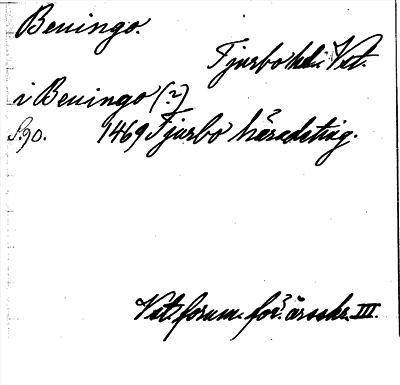 Beningo.
Tjurbo hd. Vst.
i Beningo (?)
S. 90. 1469 Tjurbo häradsting.
Vst. fornm. för. årsskr. III.